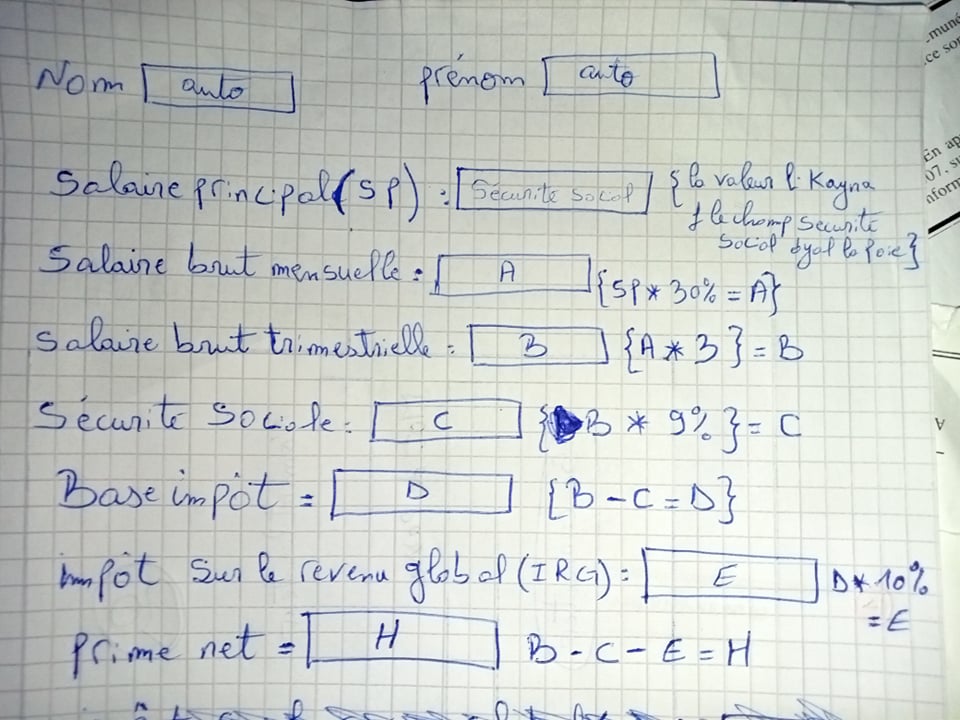 Nom auto prénom auto
Salaire principal (SP) : Sécurite Social {la valeur li Kayna
f le champ Securite
Social dyal la paie}
Salaire brut mensuelle = A {SP * 30% = A}
Salaire brut trimestrielle = B {A * 3} = B
Sécurite Sociale = C {B * 9%} = C
Base impôt = D {B - C = D}
impôt sur le revenu global (IRG) = E D * 10%
= E
prime net = H B - C - E = H
-muné
ce son
En ap
07. su
nform